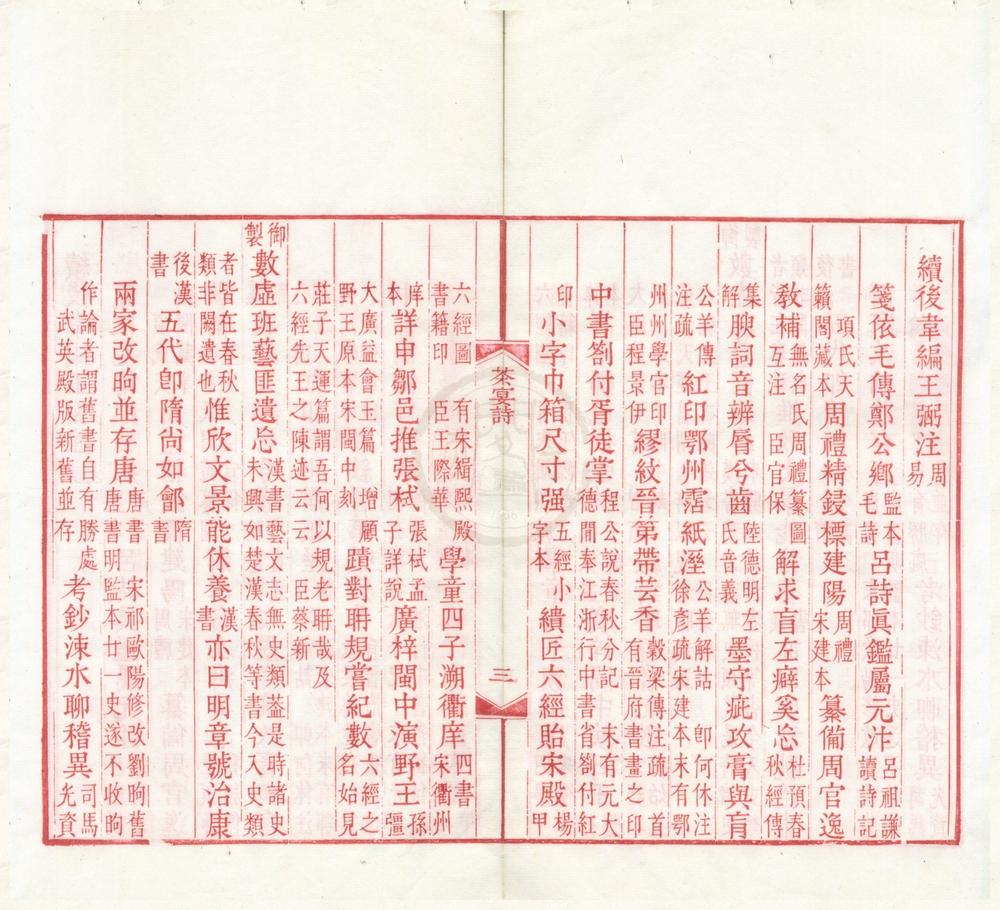 續後韋編王弼注周易
箋依毛傳鄭公鄉監本毛詩呂詩眞鑑屬元汴呂祖謙讀詩記
項氏天籟閣藏本周禮精鋟標建陽周禮宋建本纂備周官逸
教補無名氏周禮纂圖互注 臣官保解求盲左癖奚忘杜預春秋經傳
集解腴詞音辨脣兮齒陸德明左氏音義墨守疵攻膏與肓
公羊傳注疏紅印鄂州霑紙溼公羊解詁卽何休注徐彥疏宋建本末有鄂
州州學官印 臣程景伊繆紋晉第帶芸香穀梁傳注疏首有晉府書畫之印
中書劄付胥徒掌程公說春秋分記末有元大德閒奉江浙行中書省劄付紅
印小字巾箱尺寸强五經小字本繢匠六經貽宋殿楊甲
茶宴詩
三
六經圖有宋緝熙殿書籍印 臣王際華學童四子溯衢庠四書宋衢州
庠本詳申鄒邑推張栻張栻孟子詳說廣梓閩中演野王孫彊
大廣益會玉篇增顧野王原本宋閩中刻蹟對聃規嘗紀數六經之名始見
莊子天運篇謂吾何以規老聃哉及六經先王之陳迹云云 臣蔡新
御製數虛班藝匪遺忘漢書藝文志無史類葢是時諸史未興如楚漢春秋等書今入史類
者皆在春秋類非闕遺也惟欣文景能休養漢書亦曰明章號治康
後漢書五代卽隋尚如鄶隋書
兩家改昫並存唐唐書 宋祁歐陽修改劉昫舊唐書明監本廿一史遂不收昫
作論者謂舊書自有勝處武英殿版新舊並存考鈔涑水聊稽異司馬光資